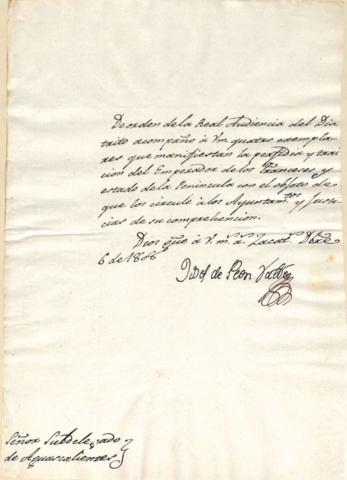 De orden de la Real Audiencia del Dis-
trito acompaño à Vm. quatro exempla-
res que manifiestan la perfidia y trai-
cion del Emperador de los Franceses, y
estado de la Peninsula con el objeto de
que los circule à los Ayuntam.tos y Justi-
cias de su comprehencion.
Dios gũe à V. m. a. Zacat. Dbre
6 de 1808
de Peon Valdes
Señor Subdelegado
de Aguascalientes